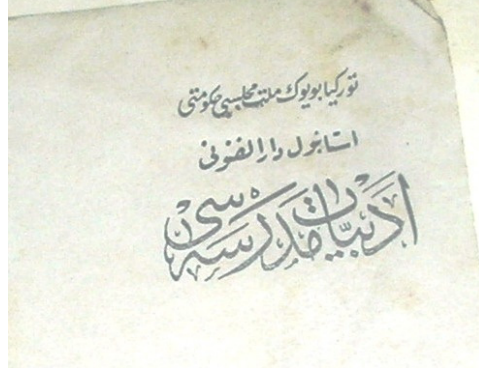 توركیا بویوك ملت مجلسی حكومتی
استانبول دار الفنونی
ادبیات مدرسه سی